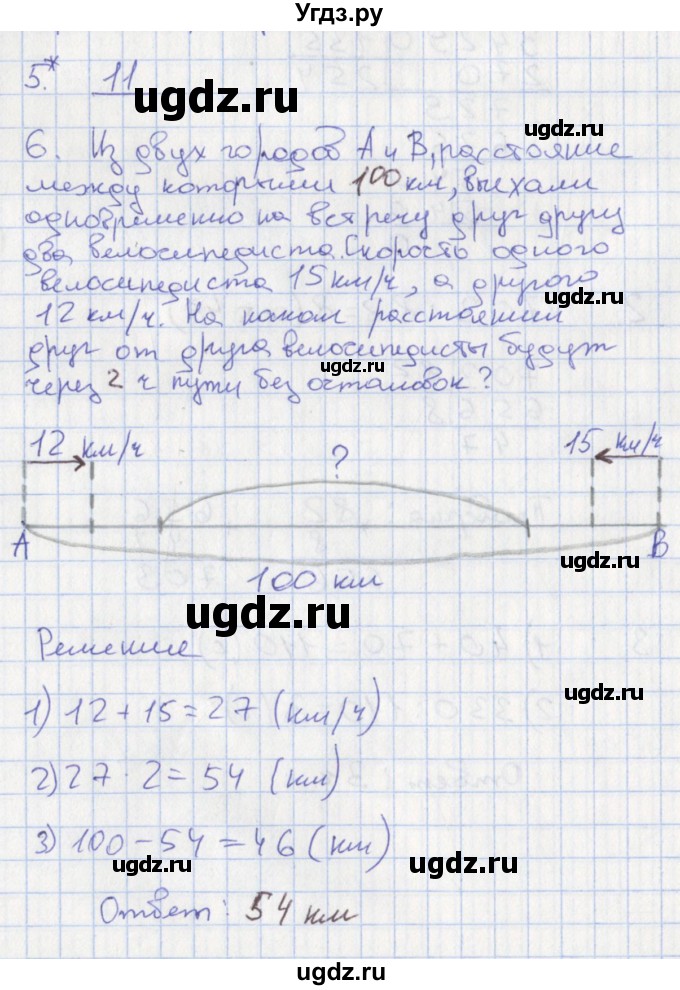 Угдз.ру
5.* 11
ugdz.ru
6. Из двух городов А и В, расстояние
ugdz.ru
между которыми 100 км, выехали
одновременно на встречу друг другу
два велосипедиста. Скорость одного
ugdz.ru
велосипедиста 15 км/ч, а другого
ugdz.ru
12 км/ч. На каком расстоянии
друг от друга велосипедисты будут
ugdz.ru
через 2 ч пути без остановок?
12 км/ч ? 15 км/ч
А В
ugdz.ru
100 км
ugdz.ru
Решение
ugdz.ru
1) 12 + 15 = 27 (км/ч)
2) 27 · 2 = 54 (км)
ugdz.ru
3) 100 - 54 = 46 (км)
ugdz.ru
ugdz.ru
Ответ: 54 км
ugdz.ru
ugdz.ru